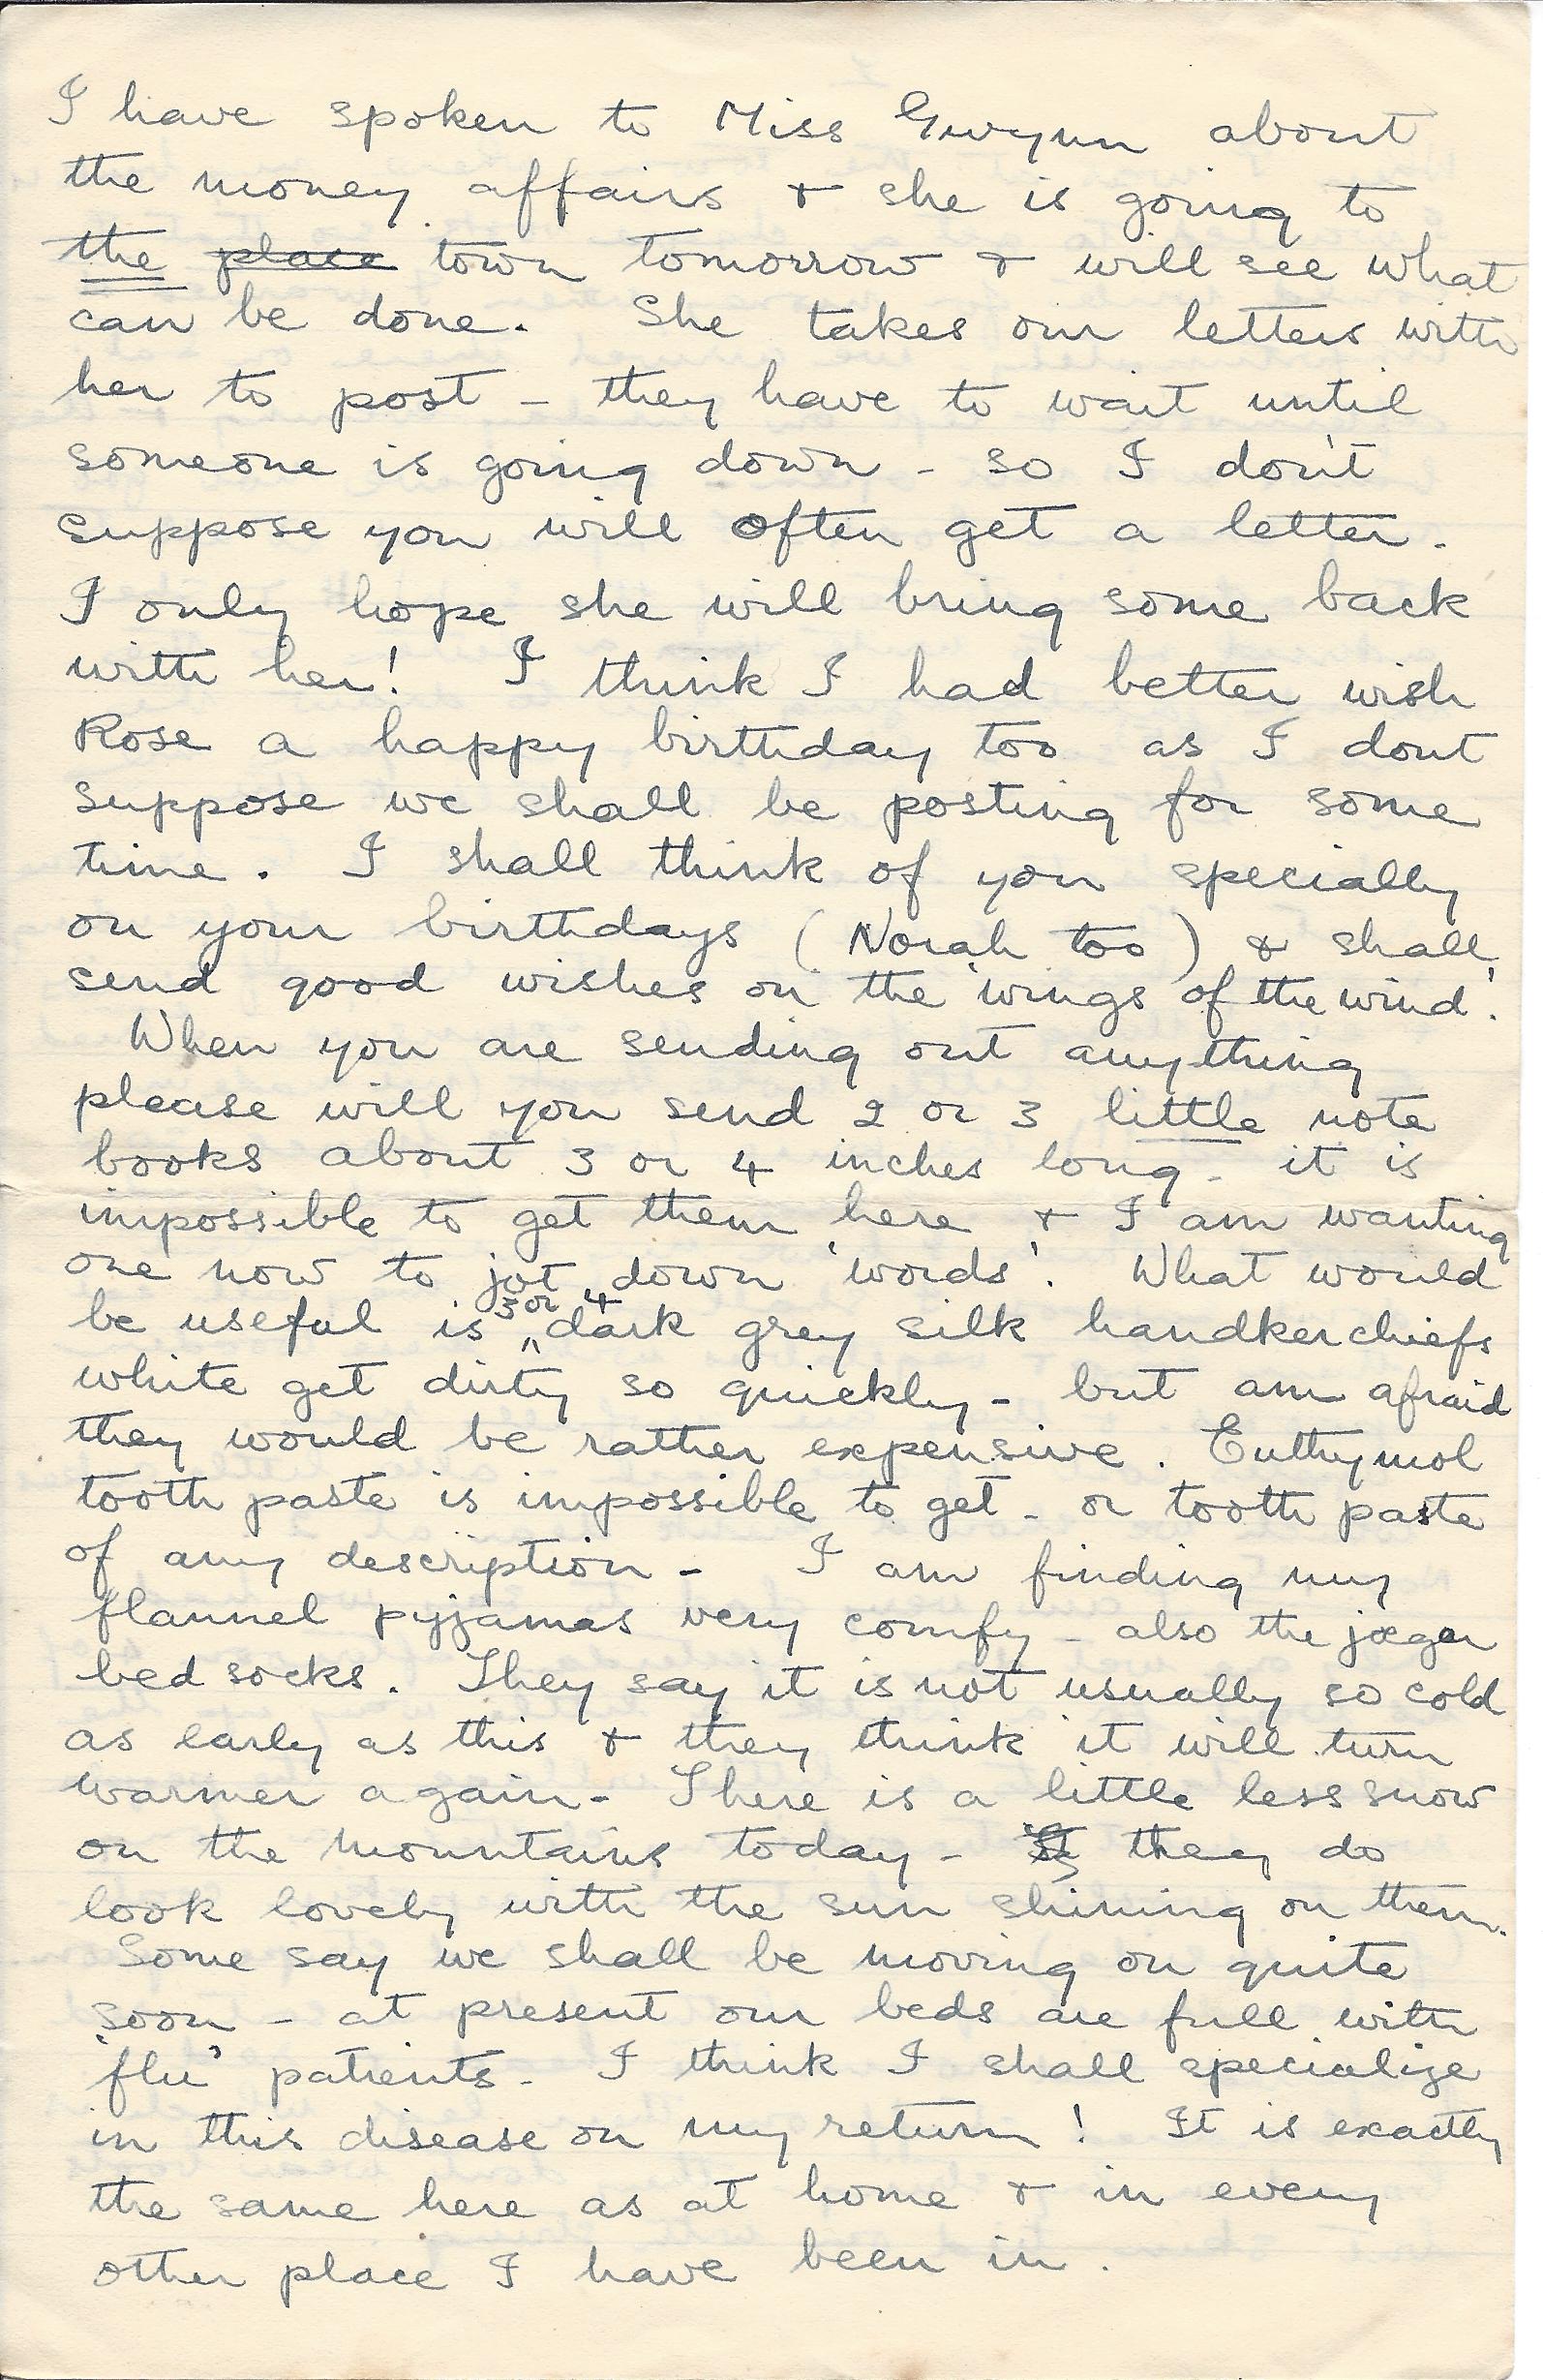 I have spoken to Miss Gwynn about
the money affairs & she is going to
the place town tomorrow & will see what
can be done. She takes our letters with
her to post - they have to wait until
someone is going down - so I don't
suppose you will often get a letter.
I only hope she will bring some back
with her! I think I had better wish
Rose a happy birthday too as I dont
suppose we shall be posting for some
time. I shall think of you specially
on your birthdays (Norah too) & shall
send good wishes on the 'wings of the wind'.
When you are sending out anything
please will you send 2 or 3 little note
books about 3 or 4 inches long - it is
impossible to get them here & I am wanting
one now to jot down 'words'. What would
be useful is 3 or 4 dark grey silk handkerchiefs
white get dirty so quickly - but am afraid
they would be rather expensive. Euthymol
tooth paste is impossible to get - or tooth paste
of any description - I am finding my
flannel pyjamas very comfy - also the jaeger
bed socks. They say it is not usually so cold
as early as this & they think it will turn
warmer again - There is a little less snow
on the mountains today - they do
look lovely with the sun shining on them.
Some say we shall be moving on quite
soon - at present our beds are full with
'flu' patients. I think I shall specialize
in this disease on my return! It is exactly
the same here as at home & in every
other place I have been in.